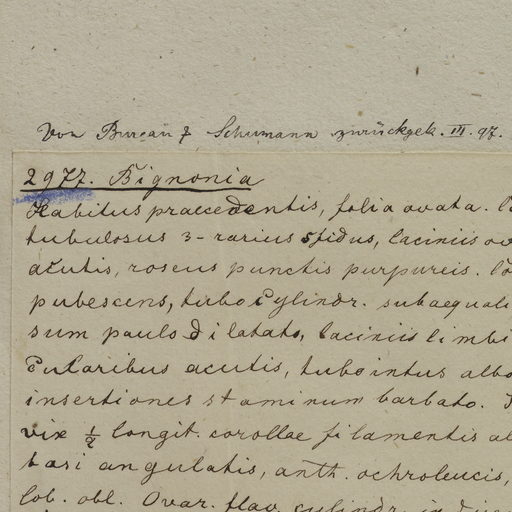 Von Bureau & Schumann zurückgek. III. 97.
2977. Bignonia
Habitus praecedentis, folia ovata.
tubulosus 3-rarius 5fidus, laciniis
acutis, roseus punctis purpureis.
pubescens, tubo cylindr. subaequali
sum paulo dilatato, laciniis limbi
acutis, tubo intus albo
insertiones staminum barbato.
vix ½ longit. corollae filamentis
basi angulatis, anth. ochroleucis,
lob. obl. Ovar. flav. cylindr.